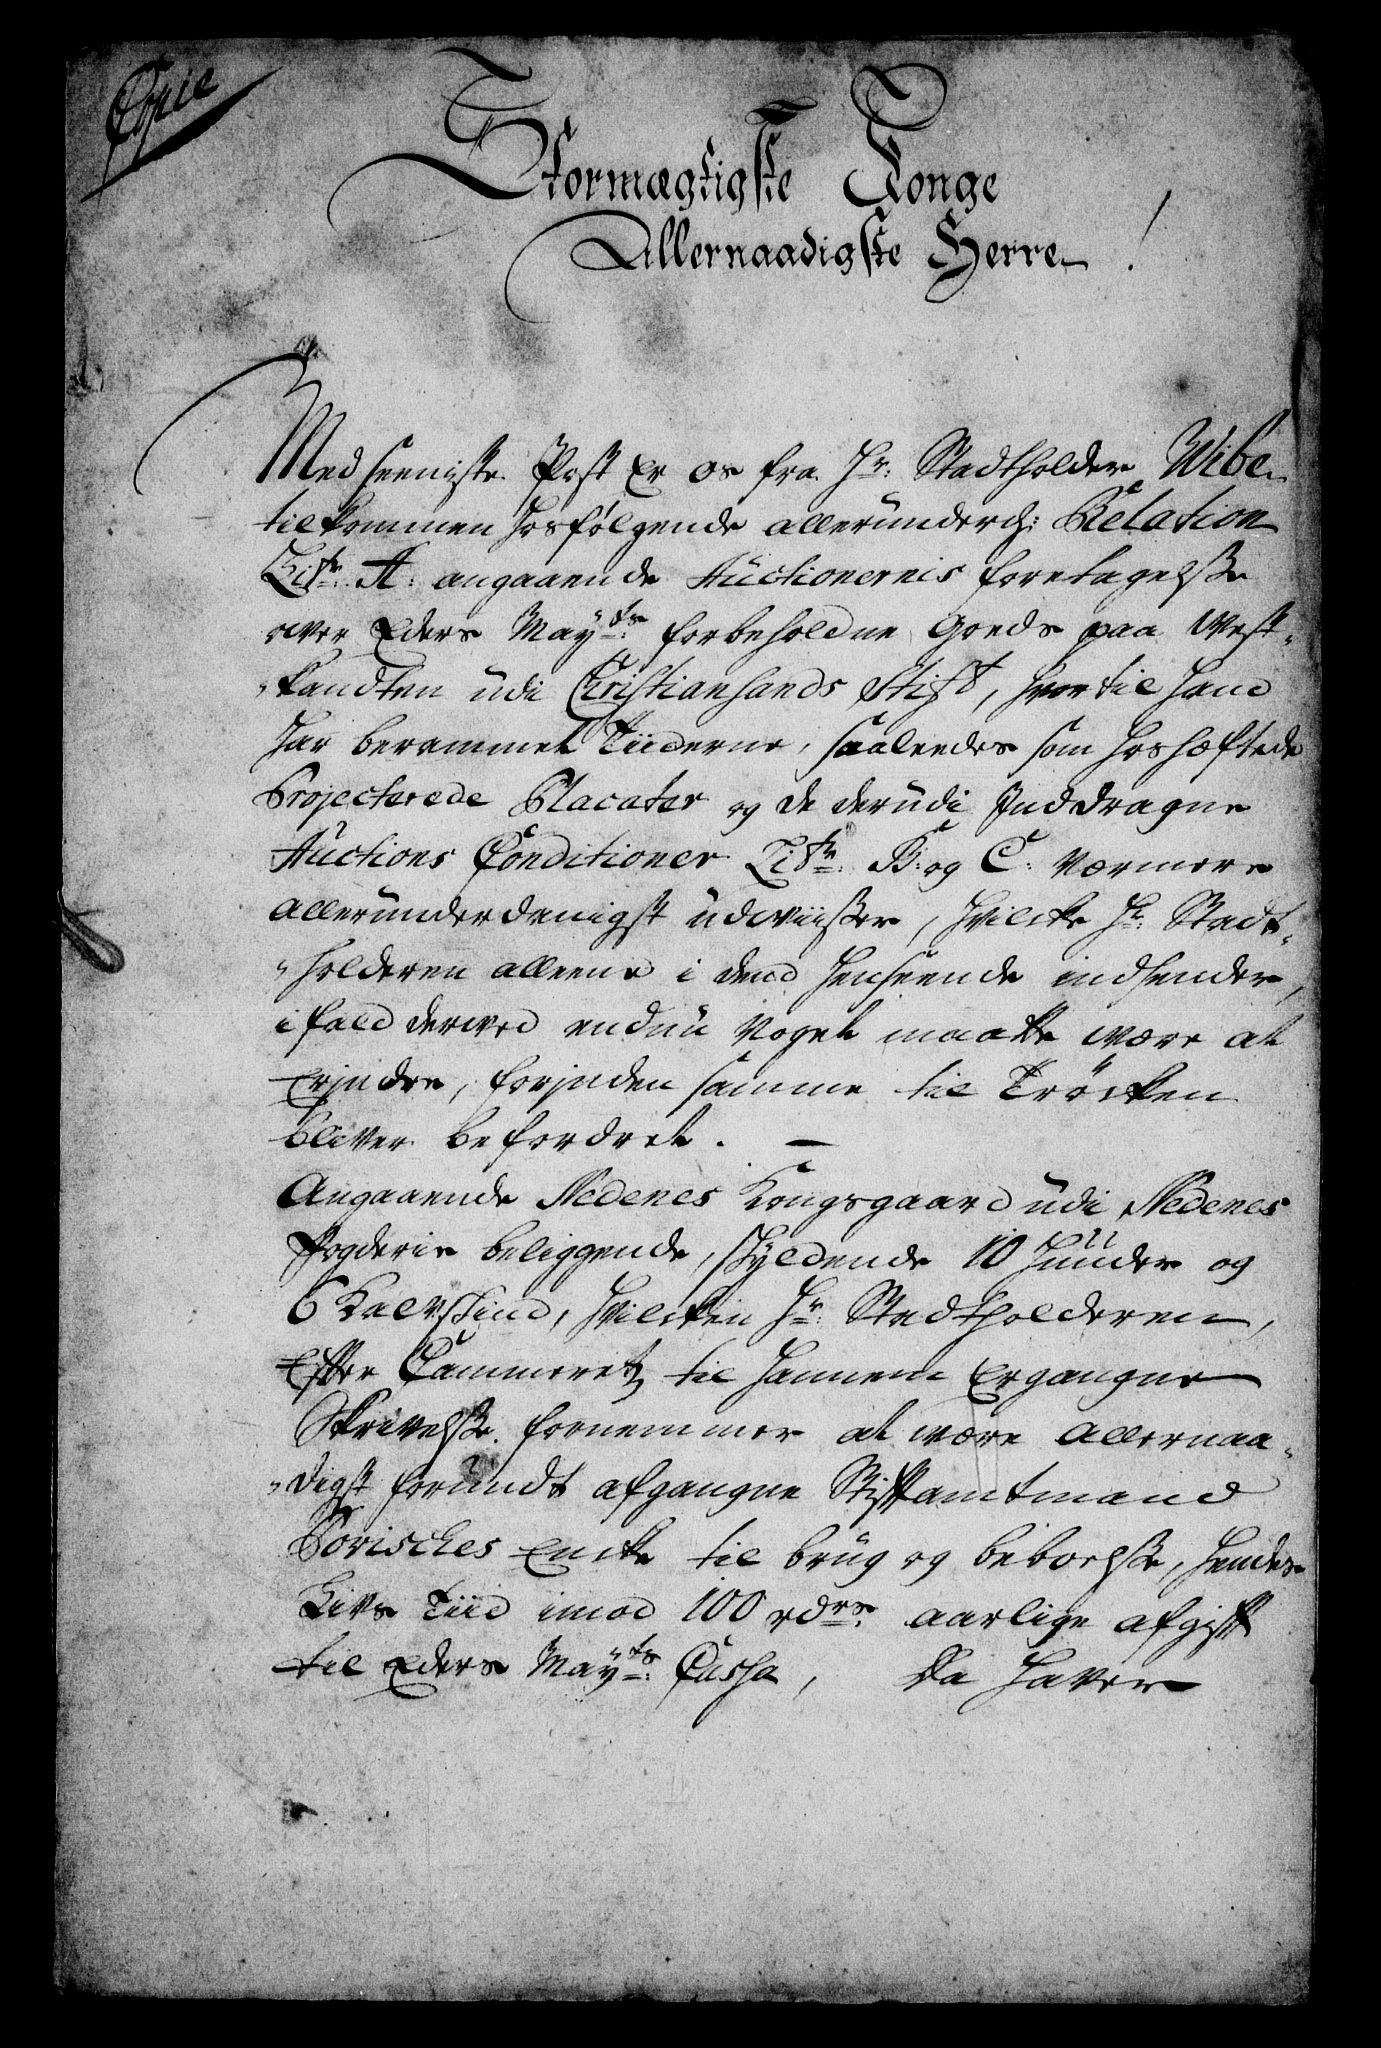 Copie
Stormægtigste Konge
Allernaadigste Herre!
Med seeniste Post er os fra Hr: Stadtholder Wibe
tilkommen hosfølgende allerunderd: Relation
Litr: A: angaaende Auctionernis foretagelse
over Eders Mayts: forbeholdne Goeds paa West-
-kandten udi Christiansands Stift, hvortil hand
har berammet Tiiderne, saaleedes som hoshæftede
Projecterede Placater og de derudi Inddragne
Auctions Conditioner Litr: B: og C: Værmere
allerunderdanigst udviiser, hvilcke Hr: Stadt-
-holderen alleene i dend henseende indsender,
ifald derved endnu Noget maatte være at
Erindre, forinden samme til Trøcken
bliver befordret. —
Angaaende Nedenes Kongsgaard udi Nedenes
Fogderie beliggende, skyldende 10 huuder og
6 Kalvskind, hvilcken Hr: Stadtholderen,
Efter Cammeretz til hannem Ergangne
Skrivelse fornemmer at være Allernaa-
-digst forundt afgangne Stiftamtmand
Povisches Encke til brug og beboelse, hendes
Livs Tiid imod 100 rdrs: aarlige afgift
til Eders Mayts: Cassa, Da haver